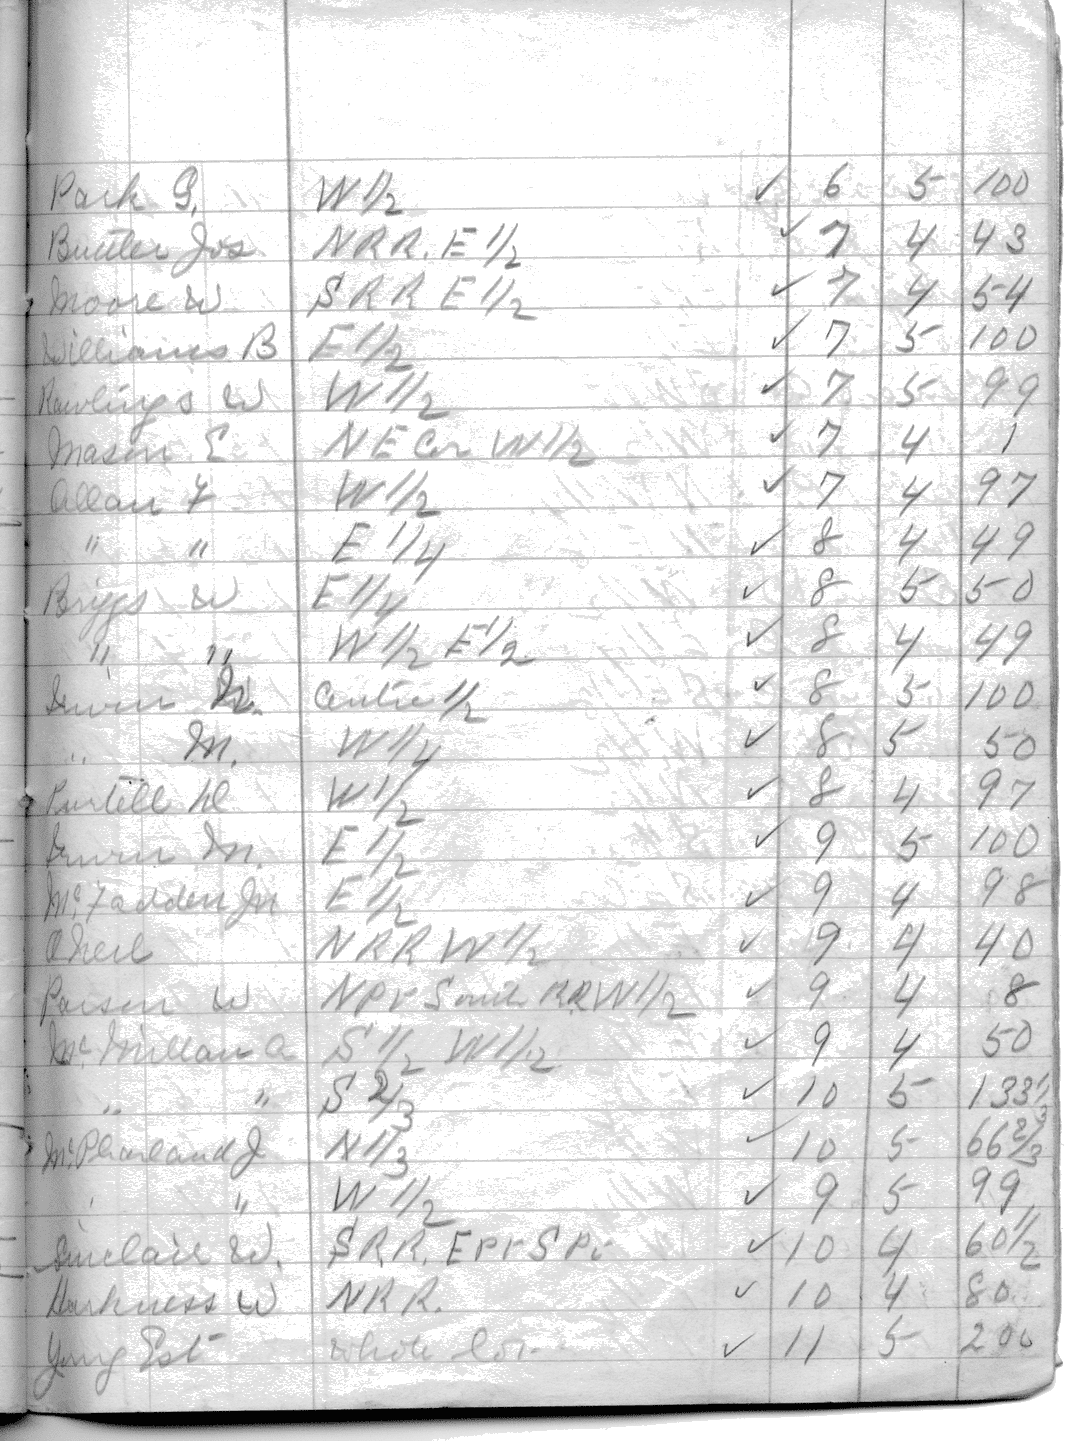 Park G. W 1/2 ✓ 6 5 100
Buttler Jos NRR. E 1/2 ✓ 7 4 43
Moore W SRR E 1/2 ✓ 7 4 54
Williams B E 1/2 ✓ 7 5 100
Rawlings W W 1/2 ✓ 7 5 99
Mason E NE Cor W 1/2 ✓ 7 4 1
Allan F W 1/2 ✓ 7 4 97
" " E 1/4 ✓ 8 4 49
Briggs W E 1/4 ✓ 8 5 50
" " W 1/2 E 1/2 ✓ 8 4 49
Irwin Centre 1/2 ✓ 8 5 100
" M. W 1/4 ✓ 8 5 50
Purtell W 1/2 ✓ 8 4 97
Irwin M. E 1/2 ✓ 9 5 100
McFadden Jn E 1/2 ✓ 9 4 98
ONeil NRR W 1/2 ✓ 9 4 40
Parson W N Pr South RR W 1/2 ✓ 9 4 8
McMillan A S 1/2 W 1/2 ✓ 9 4 50
" " S 2/3 ✓ 10 5 133 1/3
McPharland J N 1/3 ✓ 10 5 66 2/3
" " W 1/2 ✓ 9 5 99
Sinclair W. SRR. E Pr S Pr ✓ 10 4 60 1/2
Harkness W NRR. ✓ 10 4 80
Young Est Whole Lot ✓ 11 5 200